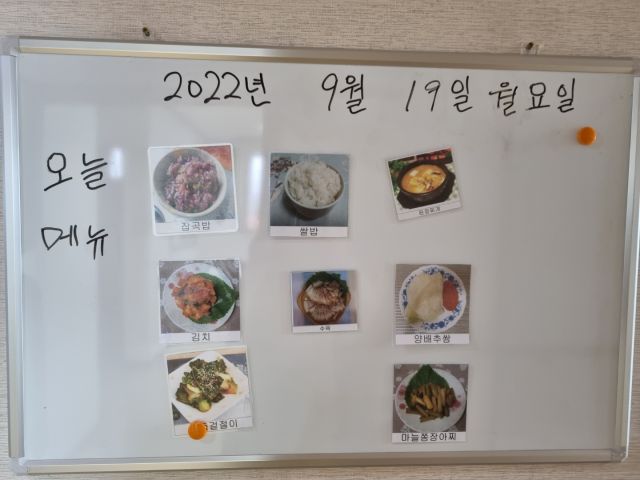 2022년 9월 19일 월요일
오늘
메뉴
잡곡밥
쌀밥
된장찌개
김치
수육
양배추쌈
겉절이
마늘쫑장아찌